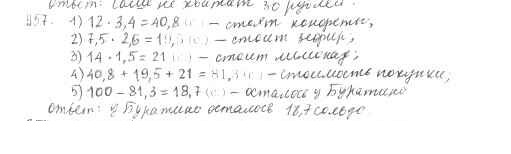 Ответ: Саше не хватит 30 рублей.
957. 1) 12 · 3,4 = 40,8 (с.) – стоят конфеты;
2) 7,5 · 2,6 = 19,5 (с.) – стоит зефир;
3) 14 · 1,5 = 21 (с.) – стоит лимонад;
4) 40,8 + 19,5 + 21 = 81,3 (с.) – стоимость покупки;
5) 100 – 81,3 = 18,7 (с.) – осталось у Буратино
Ответ: у Буратино осталось 18,7 сольдо.